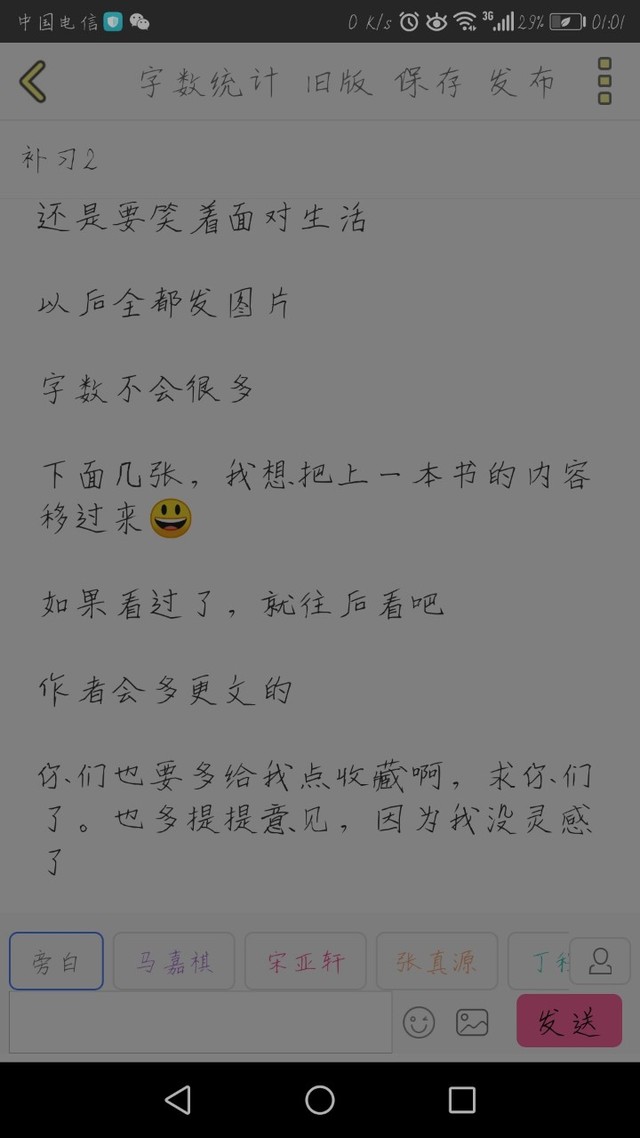 中国电信 0 K/s 3G 29% 01:01
字数统计 旧版 保存 发布
补习2
还是要笑着面对生活
以后全都发图片
字数不会很多
下面几张，我想把上一本书的内容
移过来😃
如果看过了，就往后看吧
作者会多更文的
你们也要多给我点收藏啊，求你们
了。也多提提意见，因为我没灵感
了
旁白 马嘉祺 宋亚轩 张真源 丁
发送